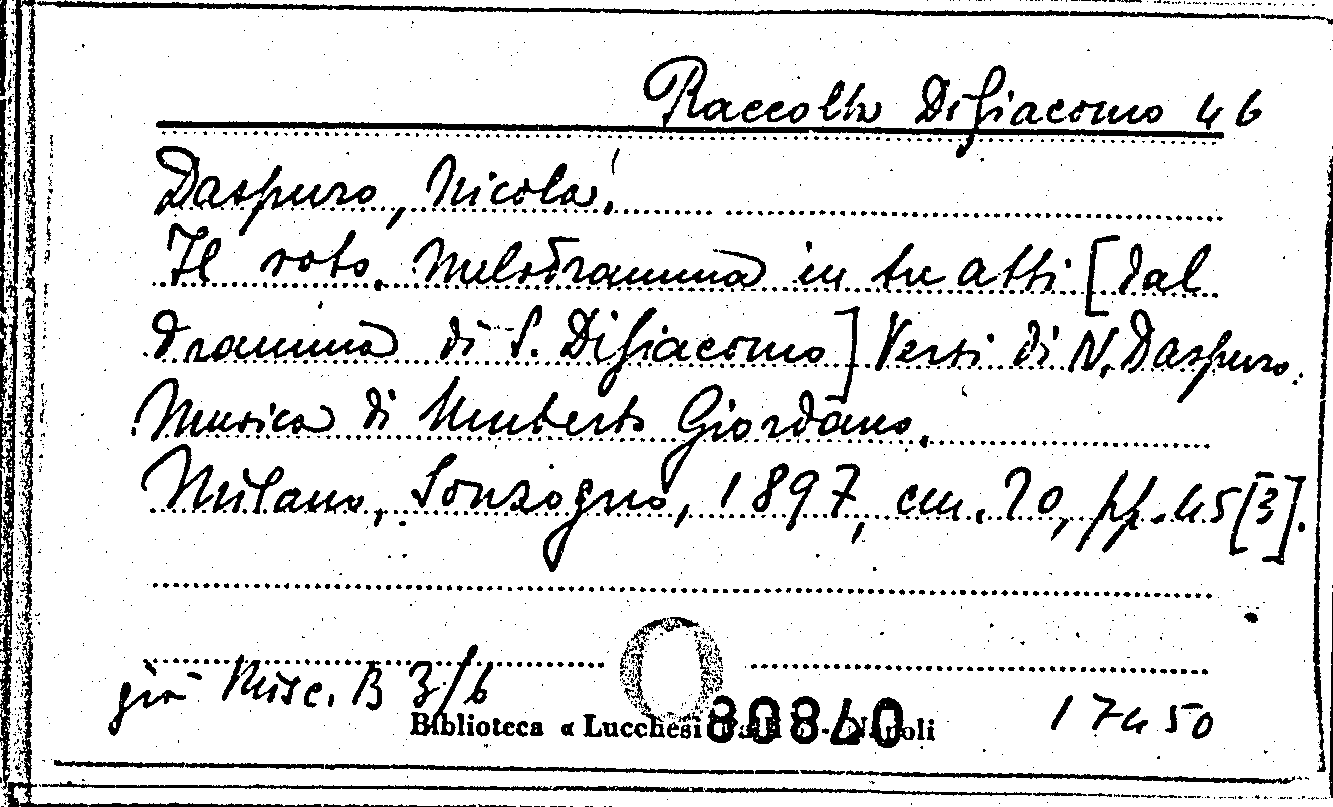 Raccolta DiGiacomo 46
Daspuro, Nicola.
Il voto. Melodramma in tre atti [dal
dramma di S. DiGiacomo] Versi di N. Daspuro.
Musica di Umberto Giordano.
Milano, Sonzogno, 1897, cm. 20, pp. 45 [3].
già Misc. B 3/6
80840
17450
Biblioteca « Lucchesi Palli » - Napoli